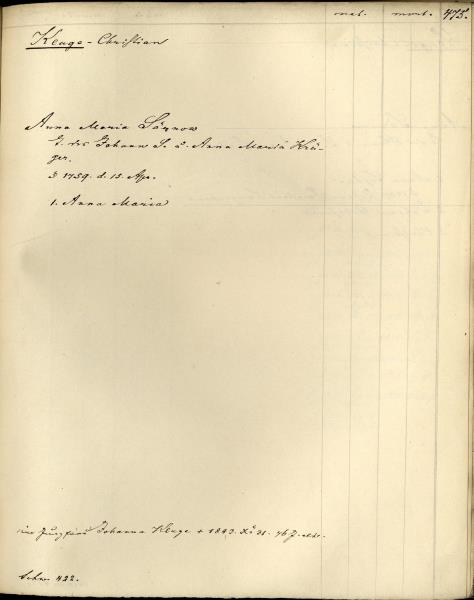 nat. mort. 475.
Kluge - Christian
Anna Maria
T. des Johann S. u. Anna Maria Krü-
ger.
1759. d. 15. Apr.
1. Anna Maria
Jungfrau Johanna Kluge + 1843. 31. 76 J. alt.
422.